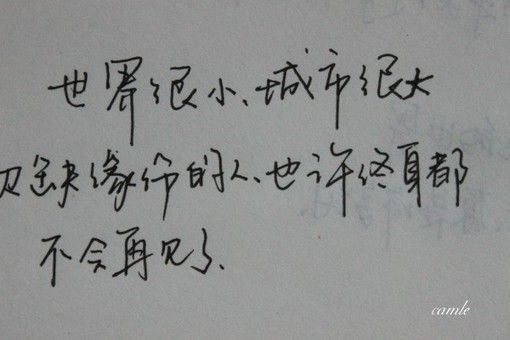 世界很小、城市很大
及缘分的人、也许终身都
不会再见了、
camle